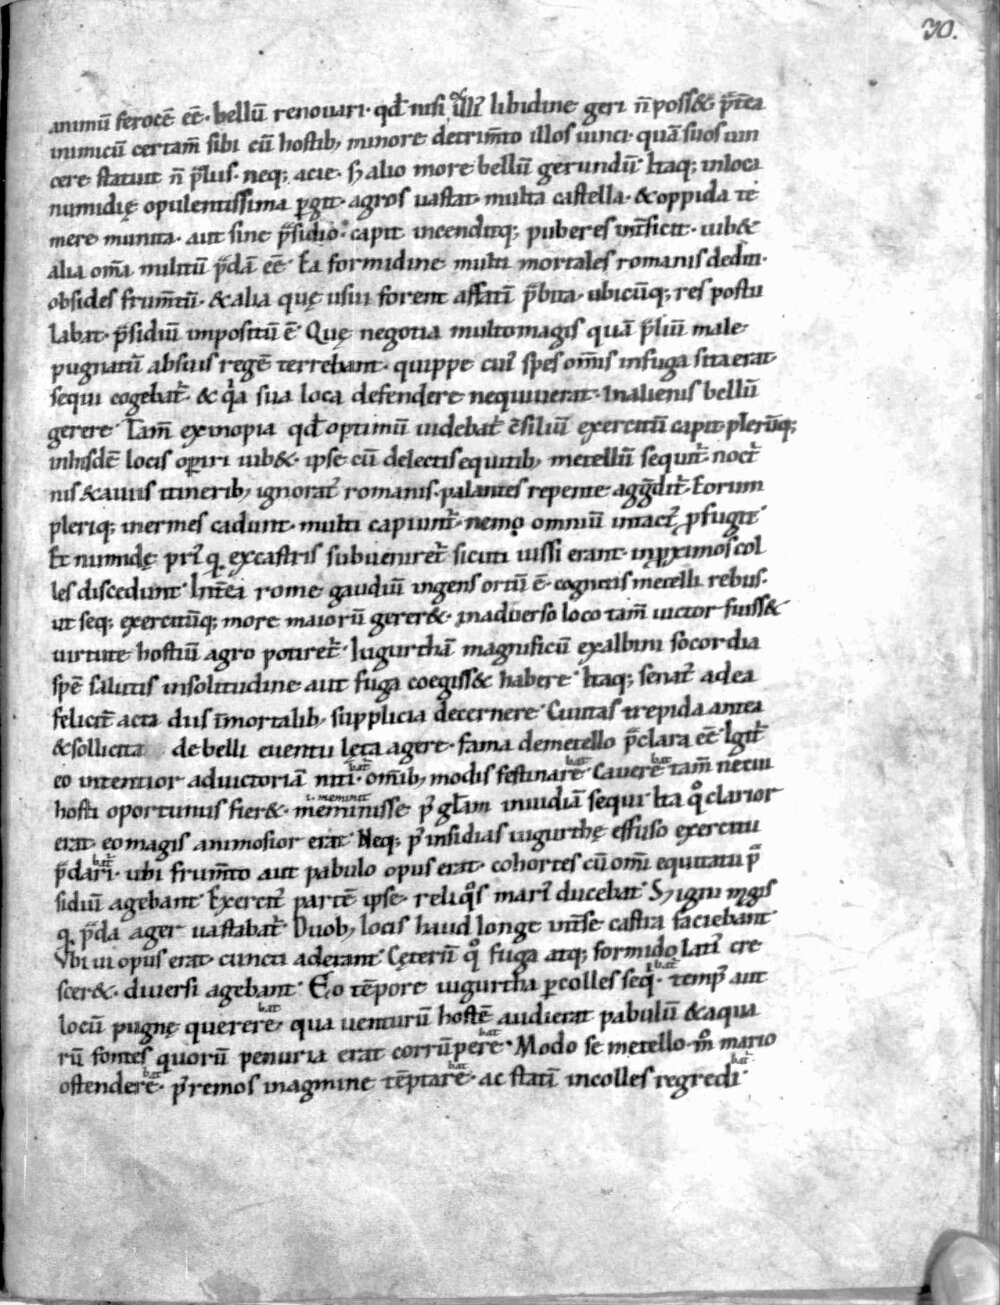 70.
animū ferocē eē· bellū renouari· qd̄ nisi ex illi᷒ libidine geri n̄ poss& p̄tea
inimicū certam̄ sibi cū hostib; minore detrim̄to illos uinci· quā suos uin
cere· statuit n̄ p̄lus· neq; acie· s; alio more bellū gerundū· Itaq; inloca
numidię opulentissima p̱git· agros uastat· multa castella· & oppida te
mere munita· aut sine p̄sidio· capit incenditq; puberes int̄ficit· iub&
alia om̄a militū p̄dā eē· Ea formidine multi mortales romanis dediti·
obsides frum̄tū· & alia quę usui forent affatī p̄bita· ubicūq; res postu
labat· p̄sidiū impositū ē· Quę negotia multomagis quā p̄liū male·
pugnatū absuis regē terrebant· quippe cui᷒ spes om̄is infuga sita erat
sequi cogebat᷒· & qͥa sua loca defendere nequiuerat· Inalienis bellū
gerere· Tam̄ exinopia qd̄ optimū uidebat᷒ c̄siliū exercitū capit· plerūq;
inhisdē locis op̱iri iub& ipse cū delectis equitib; metellū sequit᷒· noct᷒
nis & auiis itinerib; ignorat᷒ romanis· palantes repente agḡdit᷒· Eorum
pleriq; inermes cadunt· multi capiunt᷒· nemo omniū intact᷒ p̱fugit·
Et numidę pri᷒ q̱ excastris subueniret᷒ sicuti iussi erant· inp̱ximos col
les discedunt· Int̄ea rome gaudiū ingens ortū ē· cognitis metelli rebus·
ut seq; exercitūq; more maiorū gerer&· inaduerso loco tam̄ uictor fuiss&
uirtute hostiū agro potiret᷒· Iugurthā magnificū exalbini socordia
spē salutis insolitudine aut fuga coegiss& habere· Itaq; senat᷒ adea
felicit᷒ acta diis īmortalib; supplicia decernere· Ciuitas trepida antea
& sollicita de belli euentu lęta agere· fama demetello p̄clara eē· Igit᷒
eo intentior aduictoriā niti· om̄ib; modis festinare· Cauere tam̄ necui
hosti oportunus fier&· meminisse p᷒ gl̄am inuidiā sequi· Ita qͦ clarior
erat· eo magis animosior erat· Neq; p᷒ insidias iugurthę effuso exercitu
p̄dari· ubi frum̄to aut pabulo opus erat· cohortes cū om̄i equitatu p̄
sidiū agebant· Exercit᷒ partē ipse· reliqͦs mari᷒ ducebat· S; igni magis
q̱ p̄da ager uastabat᷒· Duob; locis haud longe int̄se castra faciebant·
Vbi ui opus erat· cuncti aderant· Cęterū qͦ fuga atq; formido lati᷒ cre
scer&· diuersi agebant· Eo tēpore iugurtha p̱colles seqͥ· temp᷒ aut
locū pugnę querere· qua uenturū hostē audierat pabulū & aqua
rū fontes quorū penuria erat corrūpere· Modo se metello· m̊ mario
ostendere· p᷒remos inagmine tēptare· ac statī incolles regredi·